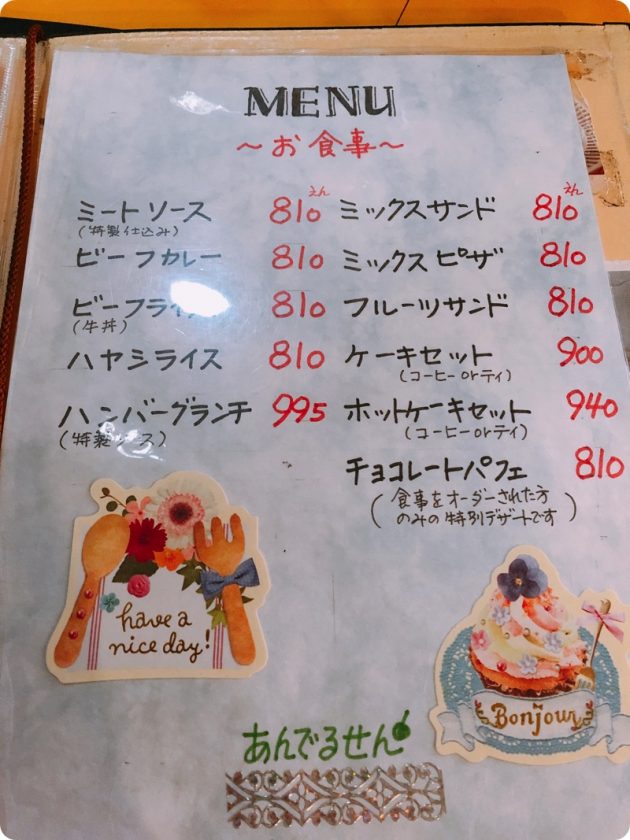 MENU
～お食事～
ミートソース 810えん
(特製仕込み)
ビーフカレー 810
810
(牛丼)
ハヤシライス 810
ハンバーグランチ 995
(特製ソース)
ミックスサンド 810えん
ミックスピザ 810
フルーツサンド 810
ケーキセット 900
(コーヒーorティ)
ホットケーキセット 940
(コーヒーorティ)
チョコレートパフェ 810
(食事をオーダーされた方
のみの特別デザートです)
have a
nice day!
Bonjour
あんでるせん